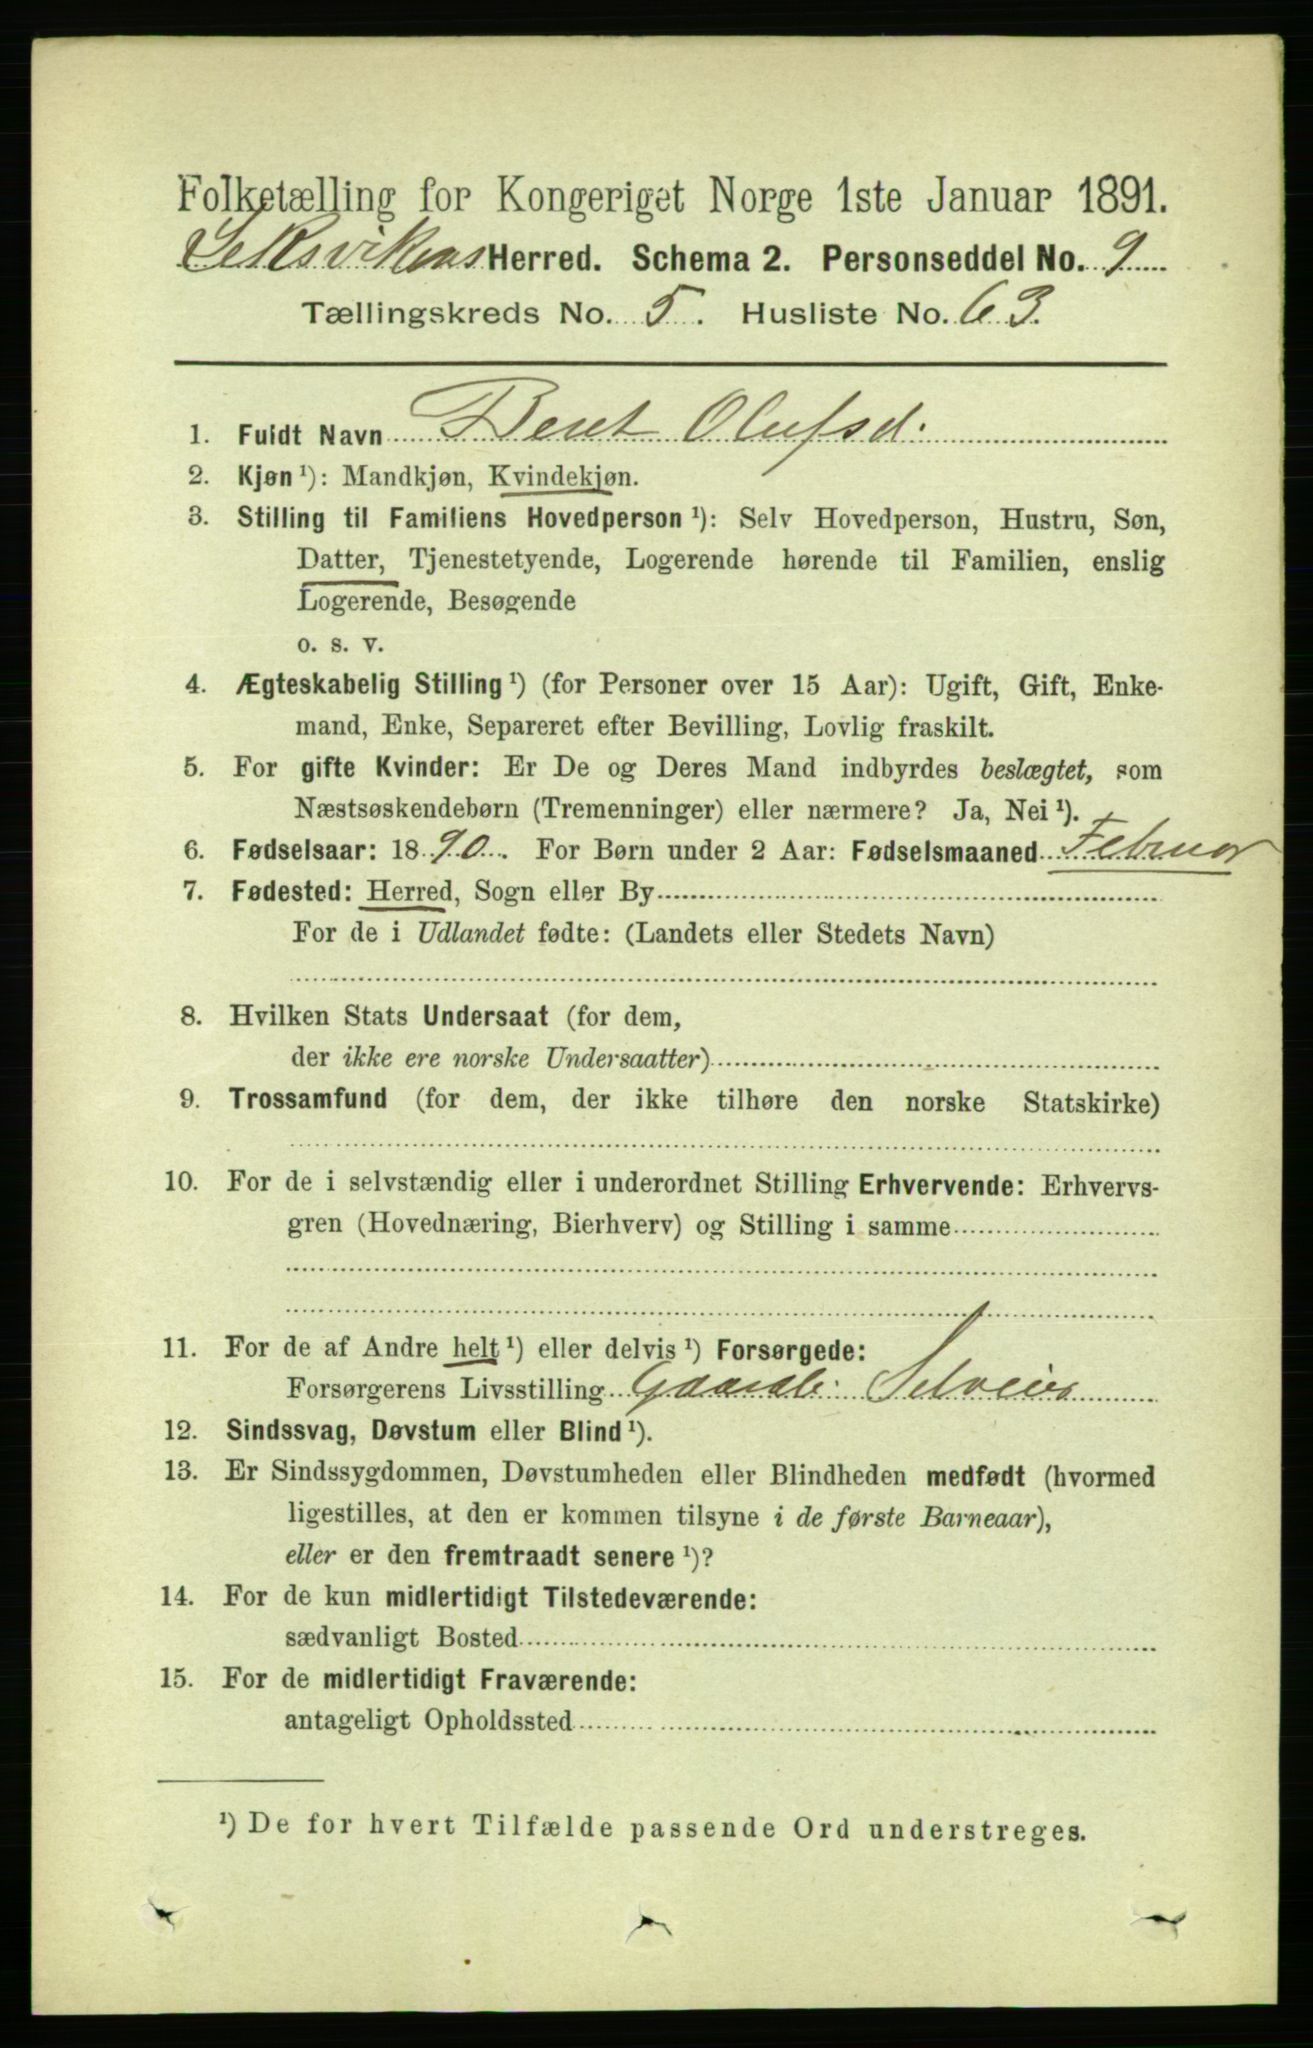 Folketælling for Kongeriget Norge 1ste Januar 1891.
Leksvikens Herred. Schema 2. Personseddel No. 9
Tællingskreds No. 5. Husliste No. 63.
1. Fuldt Navn Beret Olufsd.
2. Kjøn ¹): Mandkjøn, Kvindekjøn.
3. Stilling til Familiens Hovedperson ¹): Selv Hovedperson, Hustru, Søn,
Datter, Tjenestetyende, Logerende hørende til Familien, enslig
Logerende, Besøgende
o. s. v.
4. Ægteskabelig Stilling ¹) (for Personer over 15 Aar): Ugift, Gift, Enke-
mand, Enke, Separeret efter Bevilling, Lovlig fraskilt.
5. For gifte Kvinder: Er De og Deres Mand indbyrdes beslægtet, som
Næstsøskendebørn (Tremenninger) eller nærmere? Ja, Nei ¹).
6. Fødselsaar: 1890. For Børn under 2 Aar: Fødselsmaaned Februar
7. Fødested: Herred, Sogn eller By
For de i Udlandet fødte: (Landets eller Stedets Navn)
8. Hvilken Stats Undersaat (for dem,
der ikke ere norske Undersaatter)
9. Trossamfund (for dem, der ikke tilhøre den norske Statskirke)
10. For de i selvstændig eller i underordnet Stilling Erhvervende: Erhvervs-
gren (Hovednæring, Bierhverv) og Stilling i samme
11. For de af Andre helt ¹) eller delvis ¹) Forsørgede:
Forsørgerens Livsstilling Gaardb. Selveier
12. Sindssvag, Døvstum eller Blind ¹).
13. Er Sindssygdommen, Døvstumheden eller Blindheden medfødt (hvormed
ligestilles, at den er kommen tilsyne i de første Barneaar),
eller er den fremtraadt senere ¹)?
14. For de kun midlertidigt Tilstedeværende:
sædvanligt Bosted
15. For de midlertidigt Fraværende:
antageligt Opholdssted
¹) De for hvert Tilfælde passende Ord understreges.